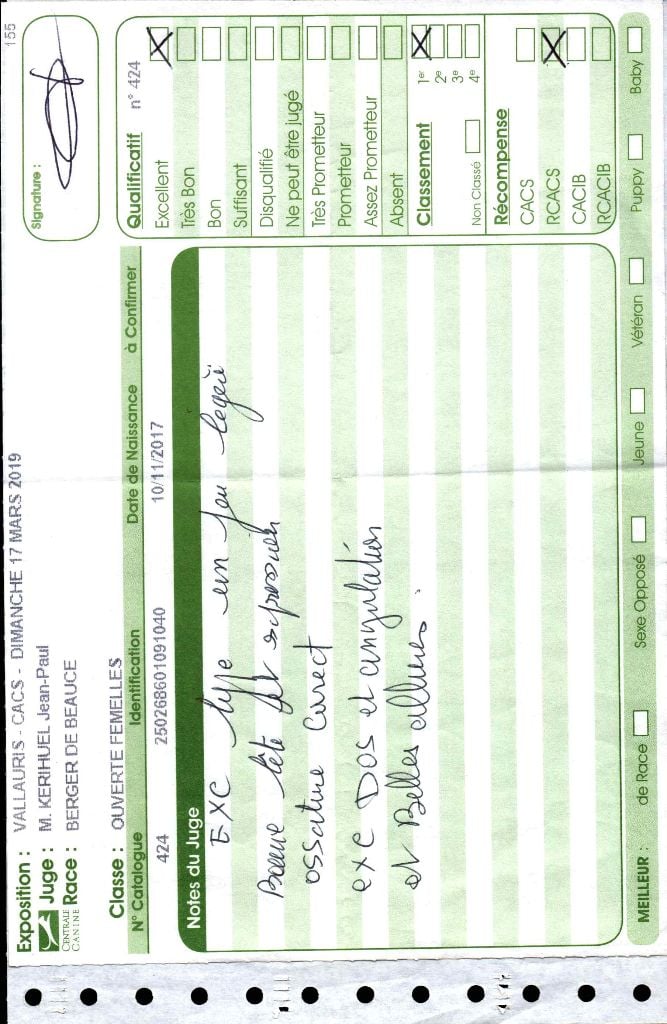 155
Exposition : VALLAURIS - CACS - DIMANCHE 17 MARS 2019
Juge : M. KERIHUEL Jean-Paul
Race : BERGER DE BEAUCE
CENTRALE
CANINE
Classe : OUVERTE FEMELLES
Signature :
N° Catalogue Identification Date de Naissance à Confirmer
424 250268601091040 10/11/2017
Notes du Juge
EXC type un peu
Bonne tête et expression
ossature correct
exc DOS et angulation
et Belles allures.
Qualificatif n° 424
Excellent
Très Bon
Bon
Suffisant
Disqualifié
Ne peut être jugé
Très Prometteur
Prometteur
Assez Prometteur
Absent
Classement
1er
2e
3e
4e
Non Classé
Récompense
CACS
RCACS
CACIB
RCACIB
MEILLEUR : de Race Sexe Opposé Jeune Vétéran Puppy Baby